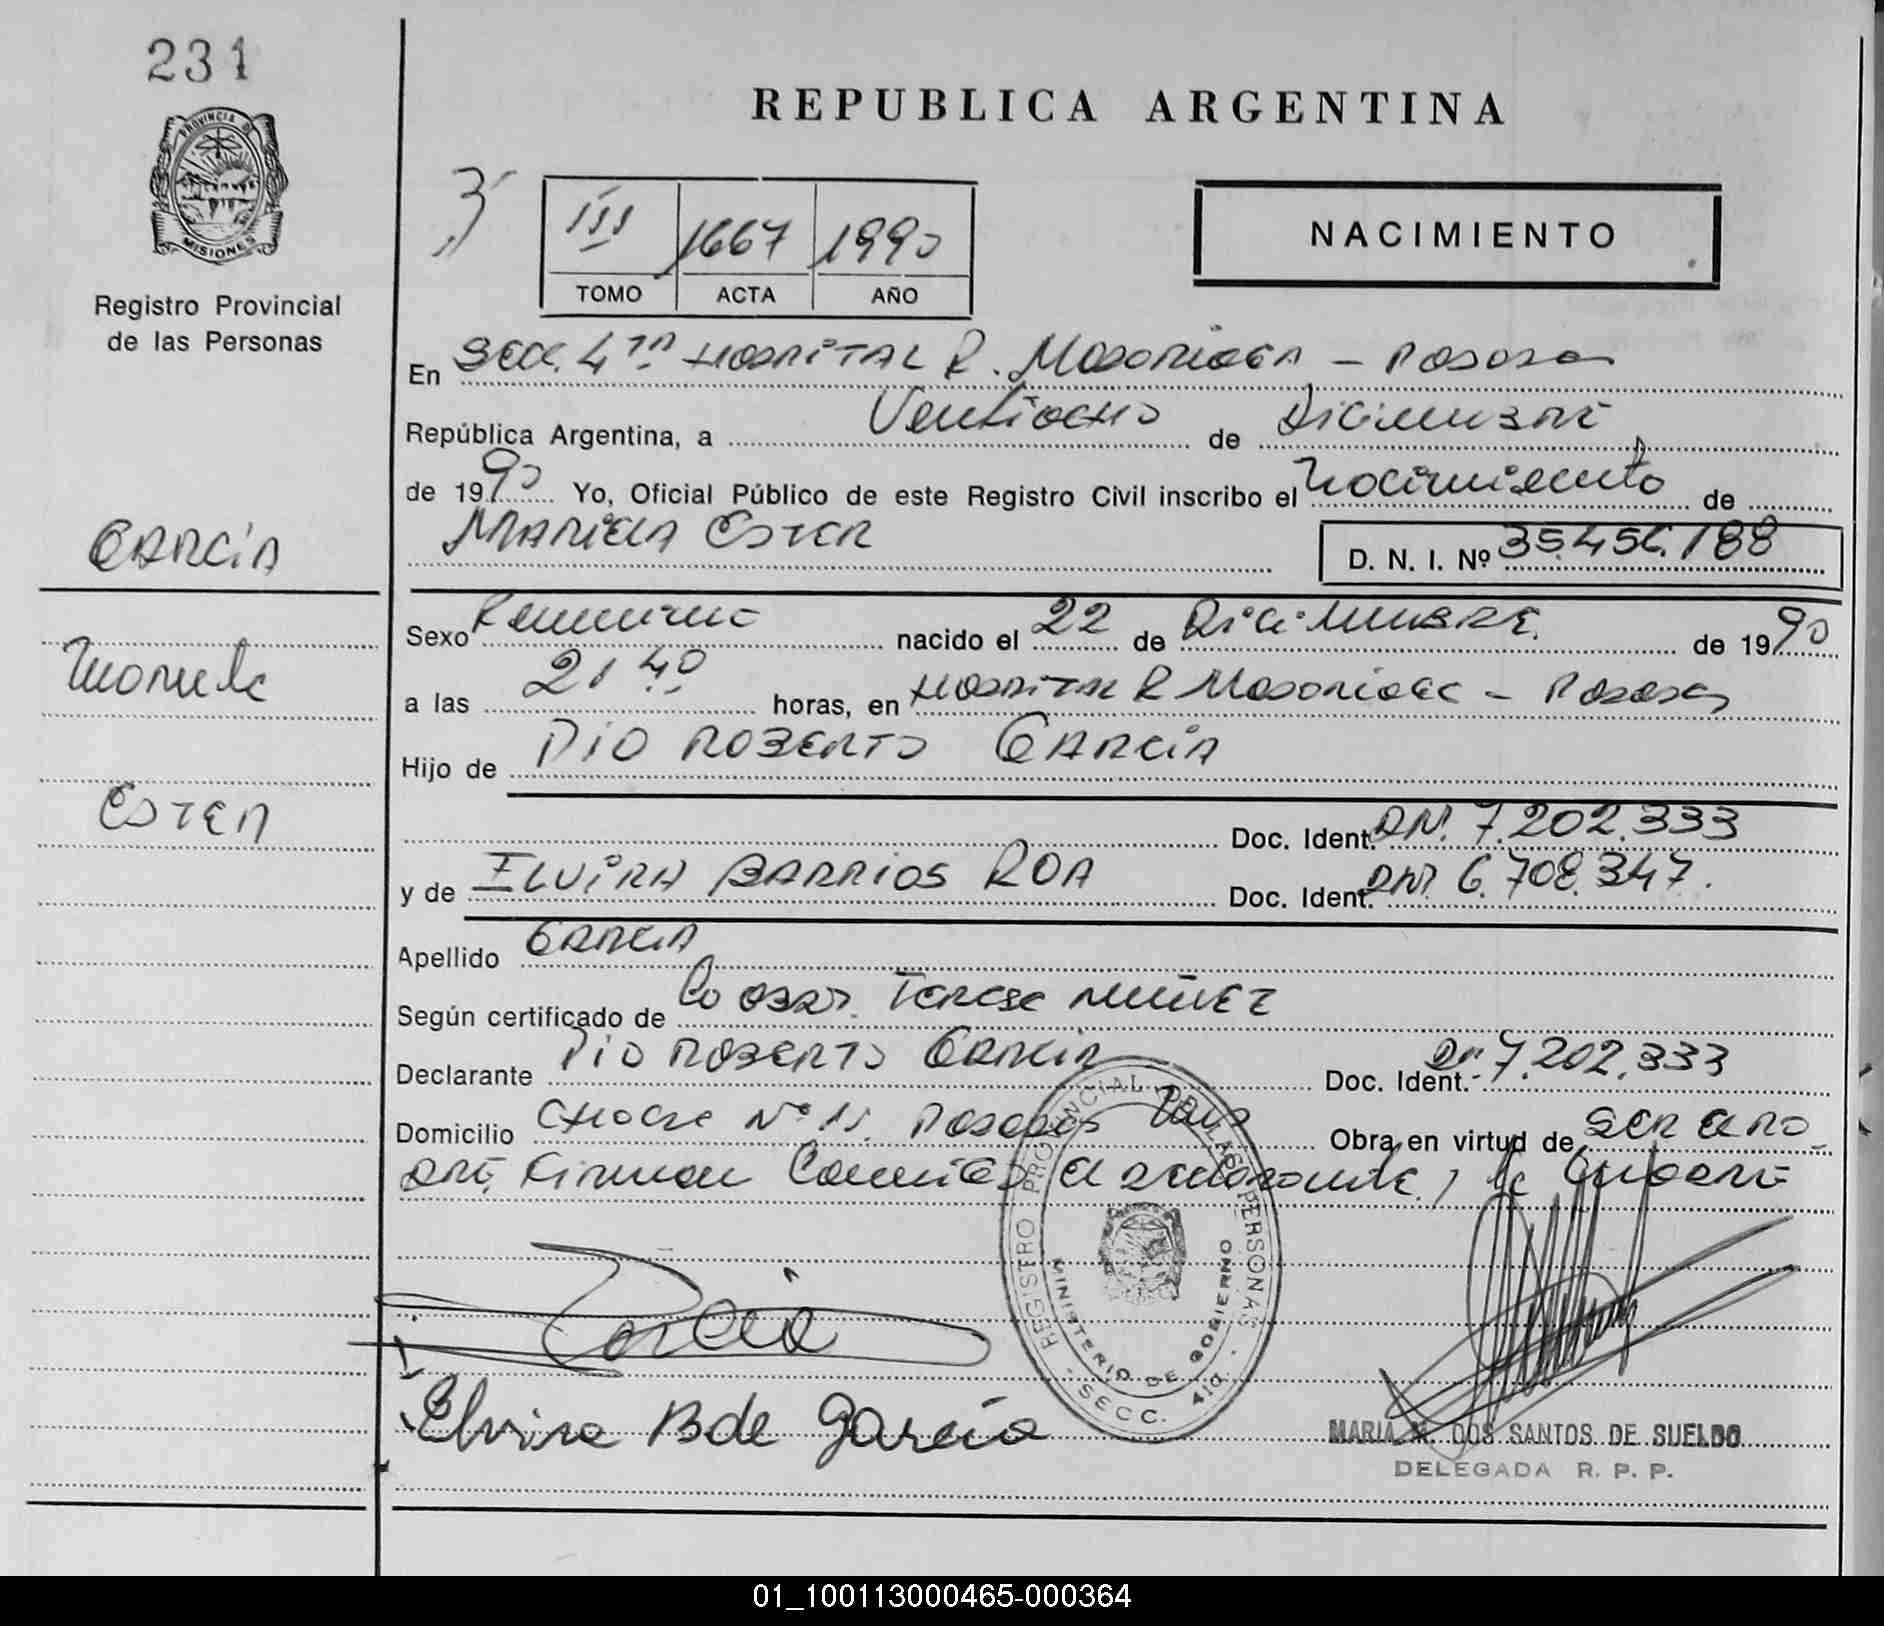 231
PROVINCIA DE
MISIONES
Registro Provincial
de las Personas
GARCÍA
Ester
REPUBLICA ARGENTINA
III 1667 1990
TOMO ACTA AÑO
NACIMIENTO
En Secc. 4ta Hospital R. Madariaga - Posadas
República Argentina, a Ventiocho de Diciembre
de 1990 Yo, Oficial Público de este Registro Civil inscribo el Nacimiento de
Mariela Ester
D. N. I. Nº 35.456.188
Sexo Femenino nacido el 22 de Diciembre de 1990
a las 21 40 horas, en Hospital R Madariaga - Posadas
Hijo de Pio Roberto García
Doc. Ident. DNI. 7.202.333
y de Elvira Barrios Roa Doc. Ident. DNI 6.708.347.
Apellido Garcia
Según certificado de La Obst. Teresa Nuñez
Declarante Pio Roberto Garcia Doc. Ident. DNI 7.202.333
Domicilio Nº 11. Posadas Obra en virtud de ser el Pa-
dre, Firman el declarante, la Madre
García
Elvira B de García
REGISTRO PROVINCIAL DE LAS PERSONAS
MINISTERIO DE GOBIERNO
- SECC. 4ta. -
MARIA M. DOS SANTOS DE SUELDO
DELEGADA R. P. P.
01_100113000465-000364